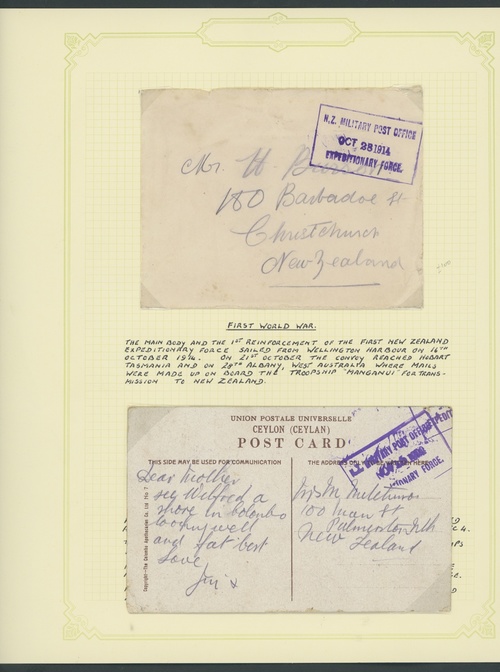 N.Z. MILITARY POST OFFICE
OCT 28 1914
EXPEDITIONARY FORCE.
Mr. H.
180 Barbadoe St
Christchurch
New Zealand
FIRST WORLD WAR.
THE MAIN BODY AND THE 1ST REINFORCEMENT OF THE FIRST NEW ZEALAND
EXPEDITIONARY FORCE SAILED FROM WELLINGTON HARBOUR ON 16TH
OCTOBER 1914. ON 21ST OCTOBER THE CONVOY REACHED HOBART
TASMANIA AND ON 28TH ALBANY, WEST AUSTRALIA WHERE MAILS
WERE MADE UP ON BOARD THE TROOPSHIP "MANGANUI" FOR TRANS-
MISSION TO NEW ZEALAND.
UNION POSTALE UNIVERSELLE
CEYLON (CEYLAN)
POST CARD
N.Z. MILITARY POST OFFICE
NOV
EXPEDITIONARY FORCE.
THIS SIDE MAY BE USED FOR COMMUNICATION
THE ADDRESS ONLY HERE
Dear Mother
see Wilfred a
shore in Colombo
looking well
and fat best
love
Jim x
Mrs M
100 Main St
Palmerston Nth
New Zealand
Copyright—The Colombo Apothecaries Co. Ltd. No 7